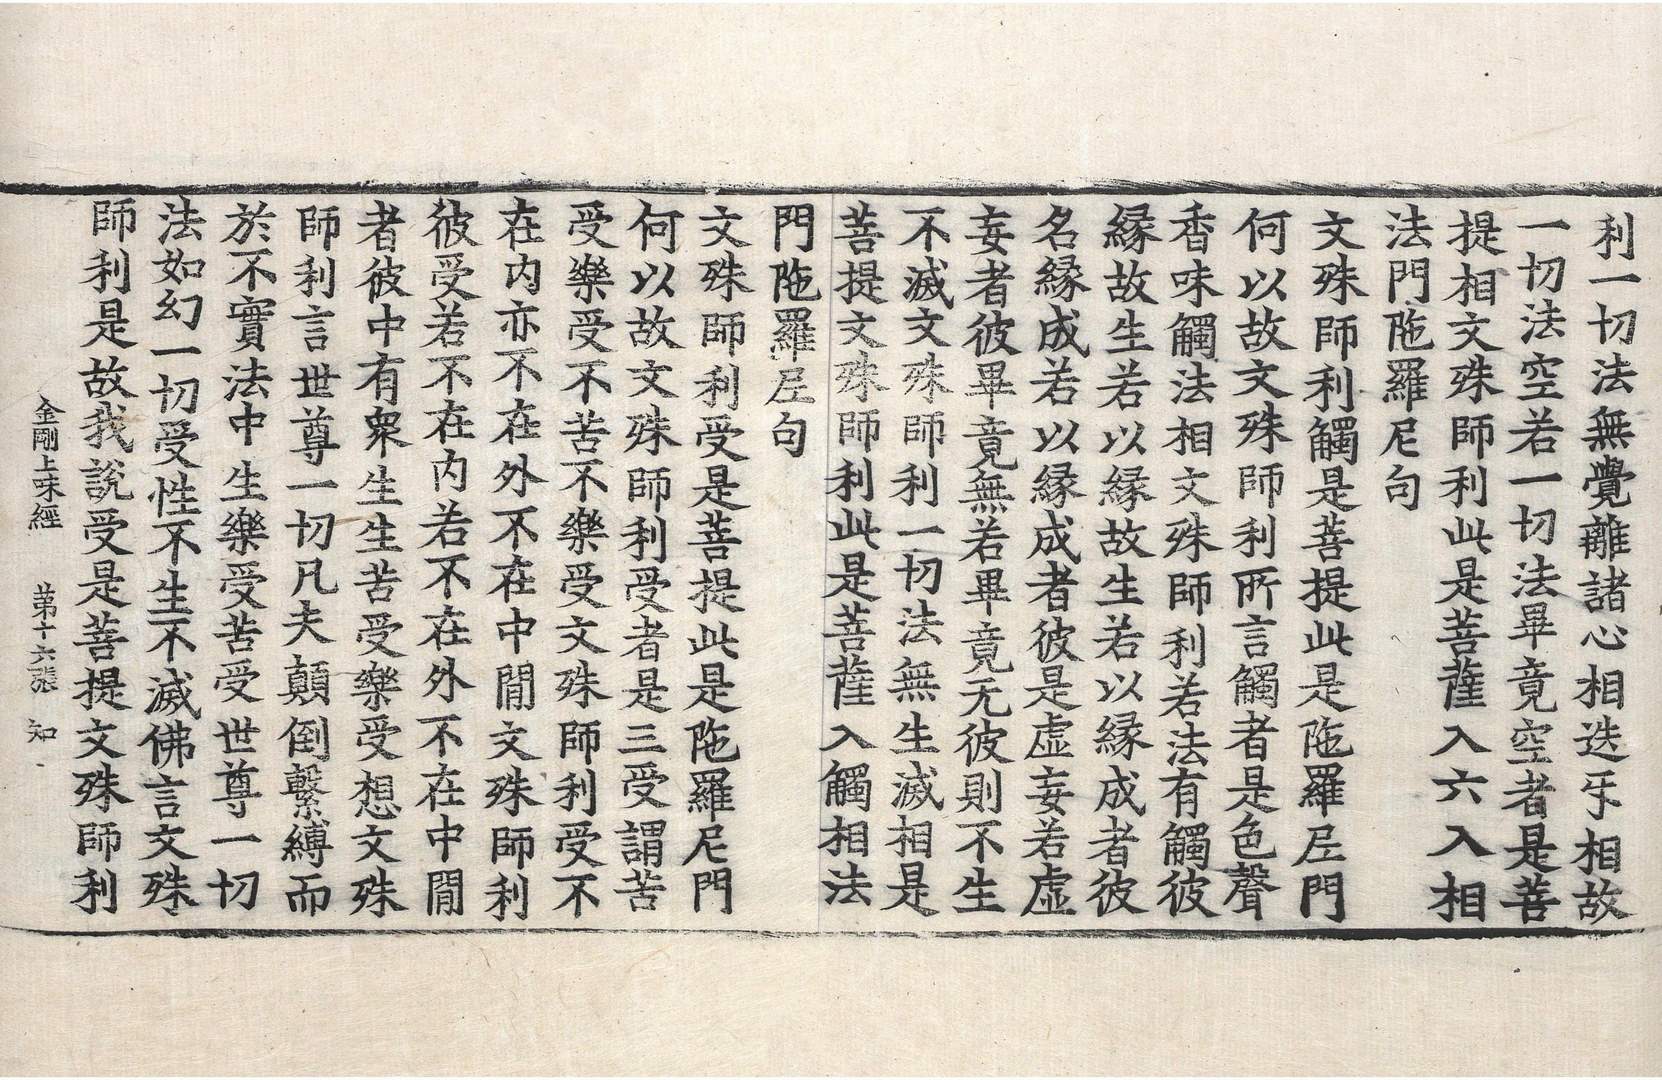 利一切法無覺離諸心相迭㸦相故
一切法空若一切法畢竟空者是菩
提相文殊師利此是菩薩入六入相
法門陁羅尼句
文殊師利觸是菩提此是陁羅𡰱門
何以故文殊師利所言觸者是色聲
香味觸法相文殊師利若法有觸彼
縁故生若以縁故生若以縁成者彼
名縁成若以縁成者彼是虛妄若虛
妄者彼畢竟無若畢竟无彼則不生
不滅文殊師利一切法無生滅相是
菩提文殊師利此是菩薩入觸相法
門陁羅𡰱句
文殊師利受是菩提此是陁羅尼門
何以故文殊師利受者是三受謂苦
受樂受不苦不樂受文殊師利受不
在内亦不在外不在中閒文殊師利
彼受若不在内若不在外不在中閒
者彼中有衆生生苦受樂受想文殊
師利言世尊一切凡夫顛倒繫縛而
於不實法中生樂受苦受世尊一切
法如幻一切受性不生不滅佛言文殊
師利是故我說受是菩提文殊師利
金剛上味經 苐十六張 知